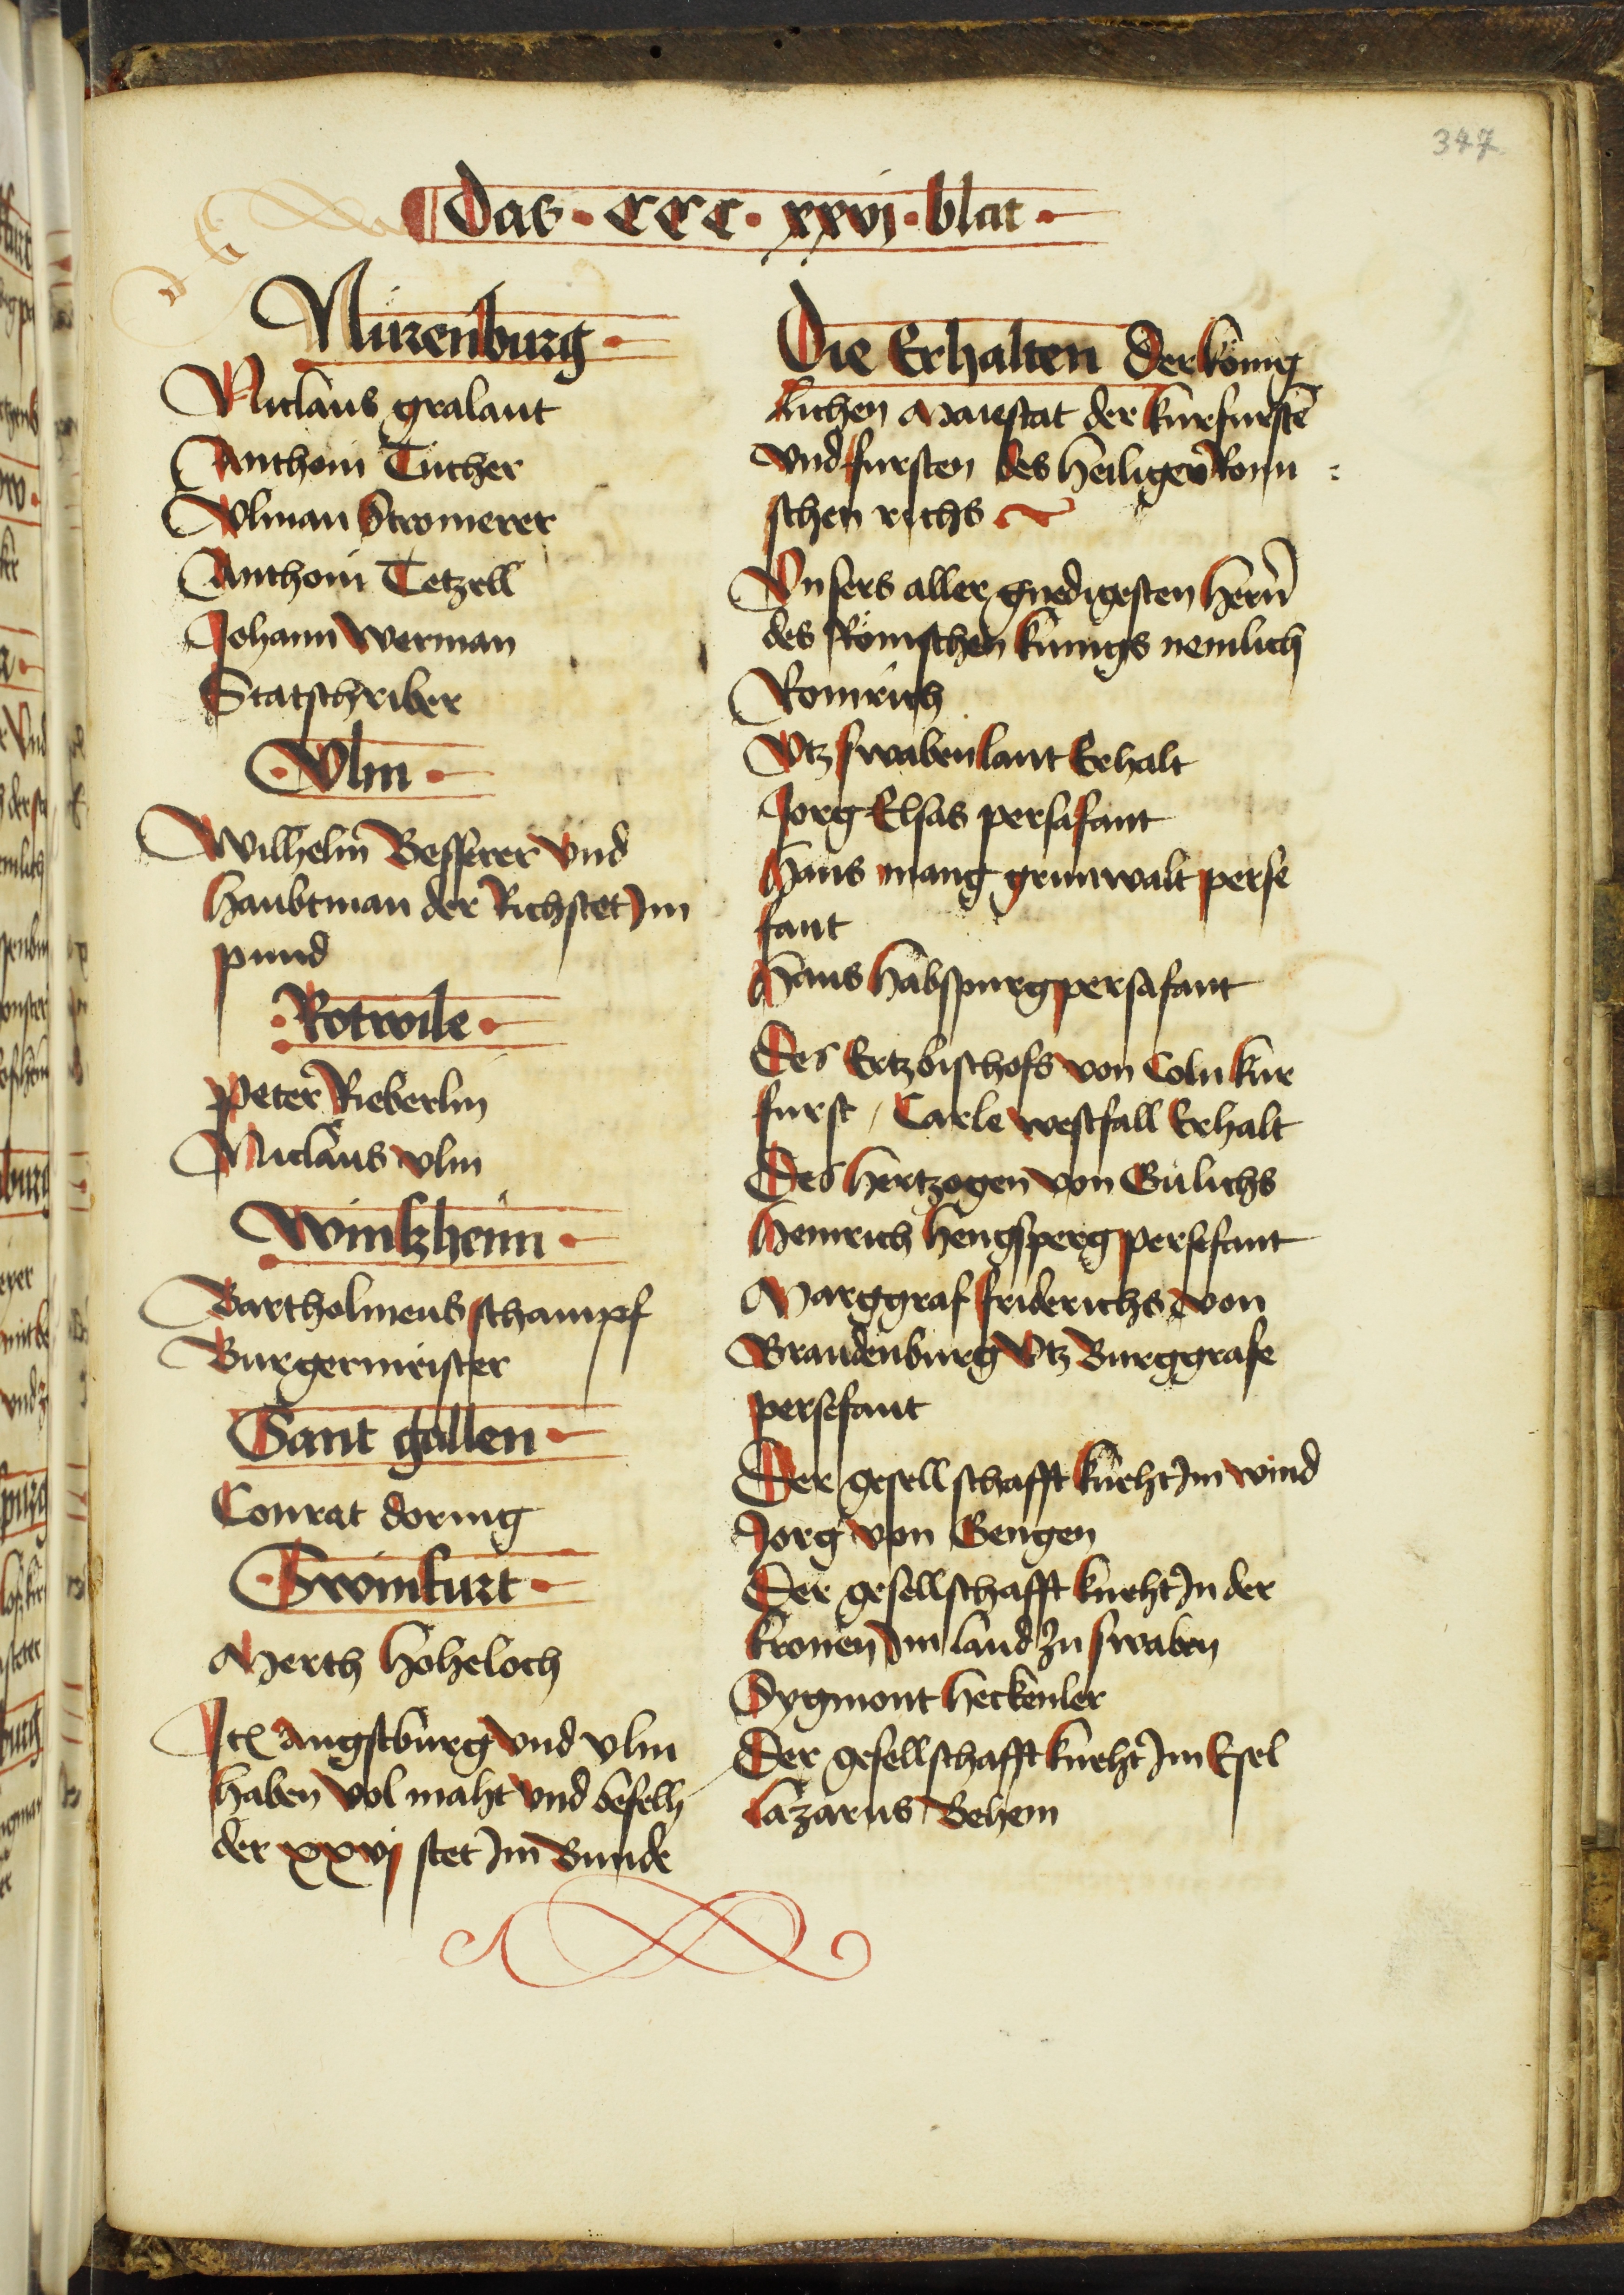 347
Das · CCC · xxvj · blat ·
Nürenburg ·
Niclaus gralant
Anthoni Tucher
Vlman Stromerer
Anthoni Tetzell
Johann werman
Statschriber
· Vlm ·
Wilhelm Besserer vnd
haubtman der Richstet Jm
pund
· Rotwile ·
Peter Rieberlin
Niclaus vlm
Wintzheim ·
Bartholmeus schampf
Burgermeister
Sant gallen ·
Conrat doring
· Swinfurt ·
Merth hoheloch
Jtem augstburg vnd vlm
haben vol maht vnd befelh
der xxvj stet Jm Bunde
Die Erhalten Der könig
lichen Maiestat der kurfurstē
vnd fursten des heiligen Romi :
schen richs
Vnsers aller gnedigesten hern̄
des Römischen künigs nemlich
Romrich
Vtz swabenlant Erhalt
Jorg Elsas persafant
Hans mang grunwalt perse
fant
Hans habspurg persafant
Des Ertzbischofs von Coln kur
furst / Carle westfall Erhalt
Des hertzogen von Gülichs
Heinrich hengsperg persefant
Marggraf friderichs von
Brandenburg Vtz Burggrafe
persefant
Der gesellschafft kneht Jm wind
Jorg von Gengen
Der gesellschafft kneht Jn der
kronen Jm land zu swaben
Sygmont heckenler
Der gesellschafft kneht Jm Esel
lazarus Behem